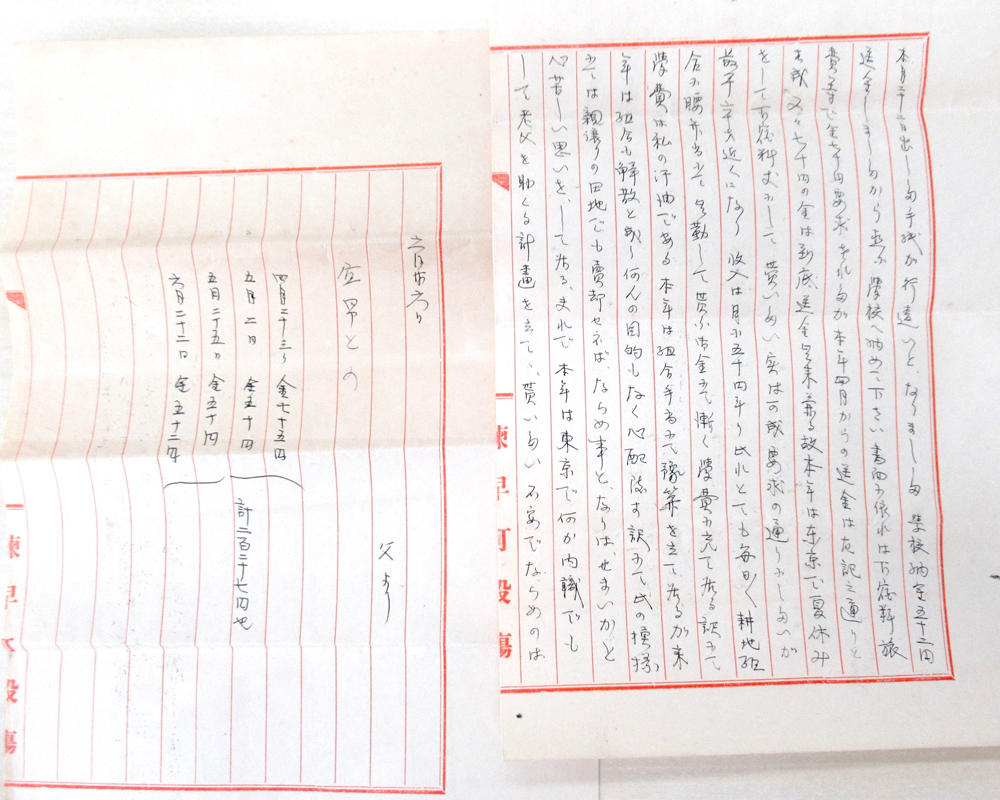 本月二十二日出しの手紙が行違いと、なりました 学校納金五十二円
送金しましたから直に学校へ納めて下さい 書面に依れば下宿料旅
費まで金七十円要求されたが本年四月からの送金は左記之通りと
も成 又々七十円の金は到底送金出来兼る故本年は東京で夏休み
をして下宿料丈にして貰いたい 実は可成要求の通りにしたいが
最早六十才近くになり 収入は月に五十四年り 此れとても毎日々耕地組
合に腰弁当にて出勤して貰ふ御金にて漸く学費に充て居る訳にて
学費は私の汗油である 本年は組合手当にて予算を立て居るが来
年は組合も解散と成り何んの目的もなく心配致す訳にて此の模様
にては親譲りの田地でも売却せねば、ならぬ事と、なりは、せまいかと
心苦しい思いを、して居る、まれで 本年は東京で何か内職でも
して老父を助くる計画を立て、貰いたい 不安でならぬのは
諫早町役場
六月廿六日
父より
四月二十三日 金七十五円
五月二日 金五十円
五月二十五日 金五十円
六月二十二日 金五十二円
計二百二十七円也
諫早町役場